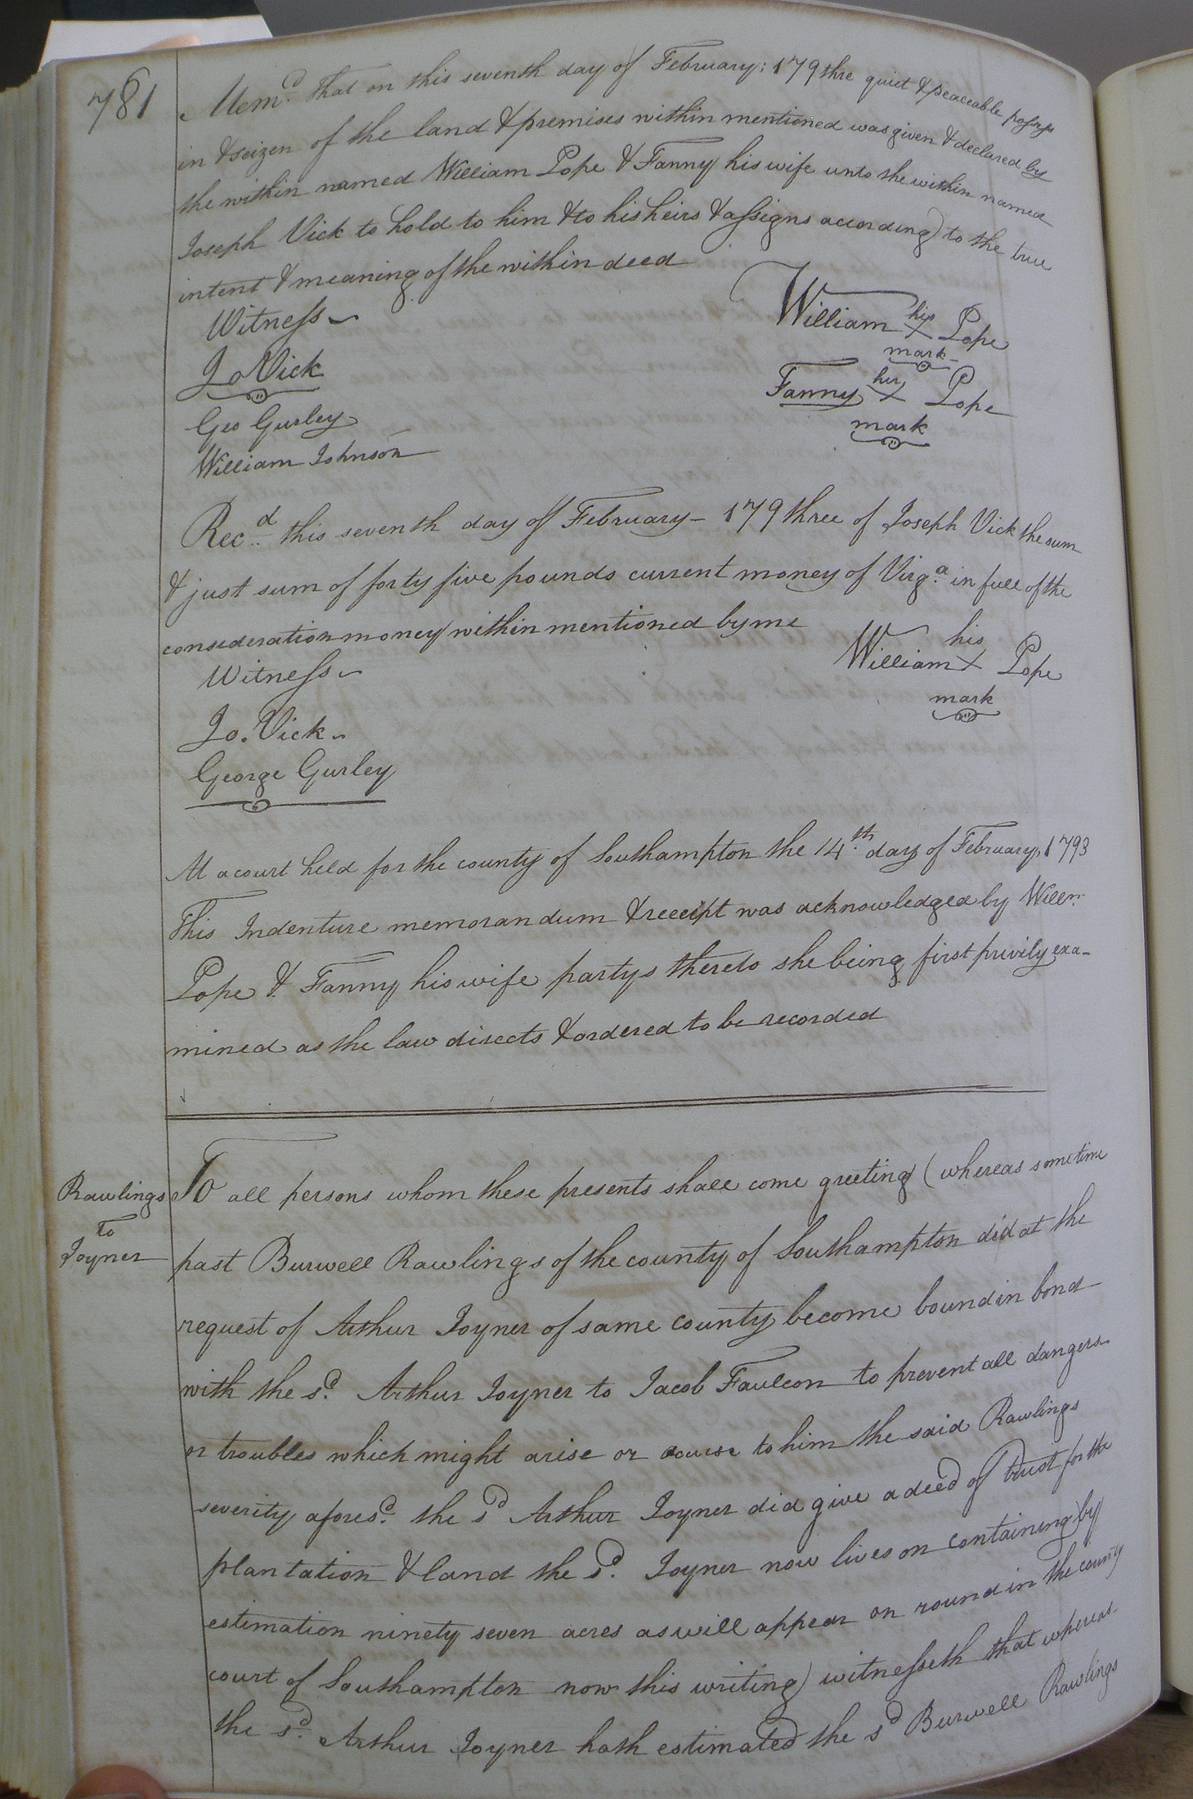 781
Mem.d that on this seventh day of February: 179three quiet & peaceable possess
in & seizen of the land & premises within mentioned was given & declared by
the within named William Pope & Fanny his wife unto the within named
Joseph Vick to hold to him & to his heirs & assigns according to the true
intent & meaning of the within deed
Witness
William his X Pope
mark
Jo Vick
Fanny her X Pope
mark
Geo Gurley
William Johnson
Rec.d this seventh day of February - 179three of Joseph Vick the sum
& just sum of forty five pounds current money of Virg.a in full of the
consideration money within mentioned by me
Witness
William his X Pope
mark
Jo. Vick
George Gurley
At a court held for the county of Southampton the 14.th day of February, 1793
This Indenture memorandum & receipt was acknowledged by Willm
Pope & Fanny his wife partys thereto she being first privily exa-
mined as the law directs & ordered to be recorded
Rawlings
to
Joyner
To all persons whom these presents shall come greeting (whereas sometime
past Burwell Rawlings of the county of Southampton did at the
request of Arthur Joyner of same county become bound in bond
with the s.d Arthur Joyner to Jacob Faulcon to prevent all dangers
or troubles which might arise or to him the said Rawlings
severity afores.d the s.d Arthur Joyner did give a deed of trust for the
plantation & land the s.d Joyner now lives on containing by
estimation ninety seven acres as will appear on round in the county
court of Southampton now this writing) witnesseth that whereas
the s.d Arthur Joyner hath estimated the s.d Burwell Rawlings